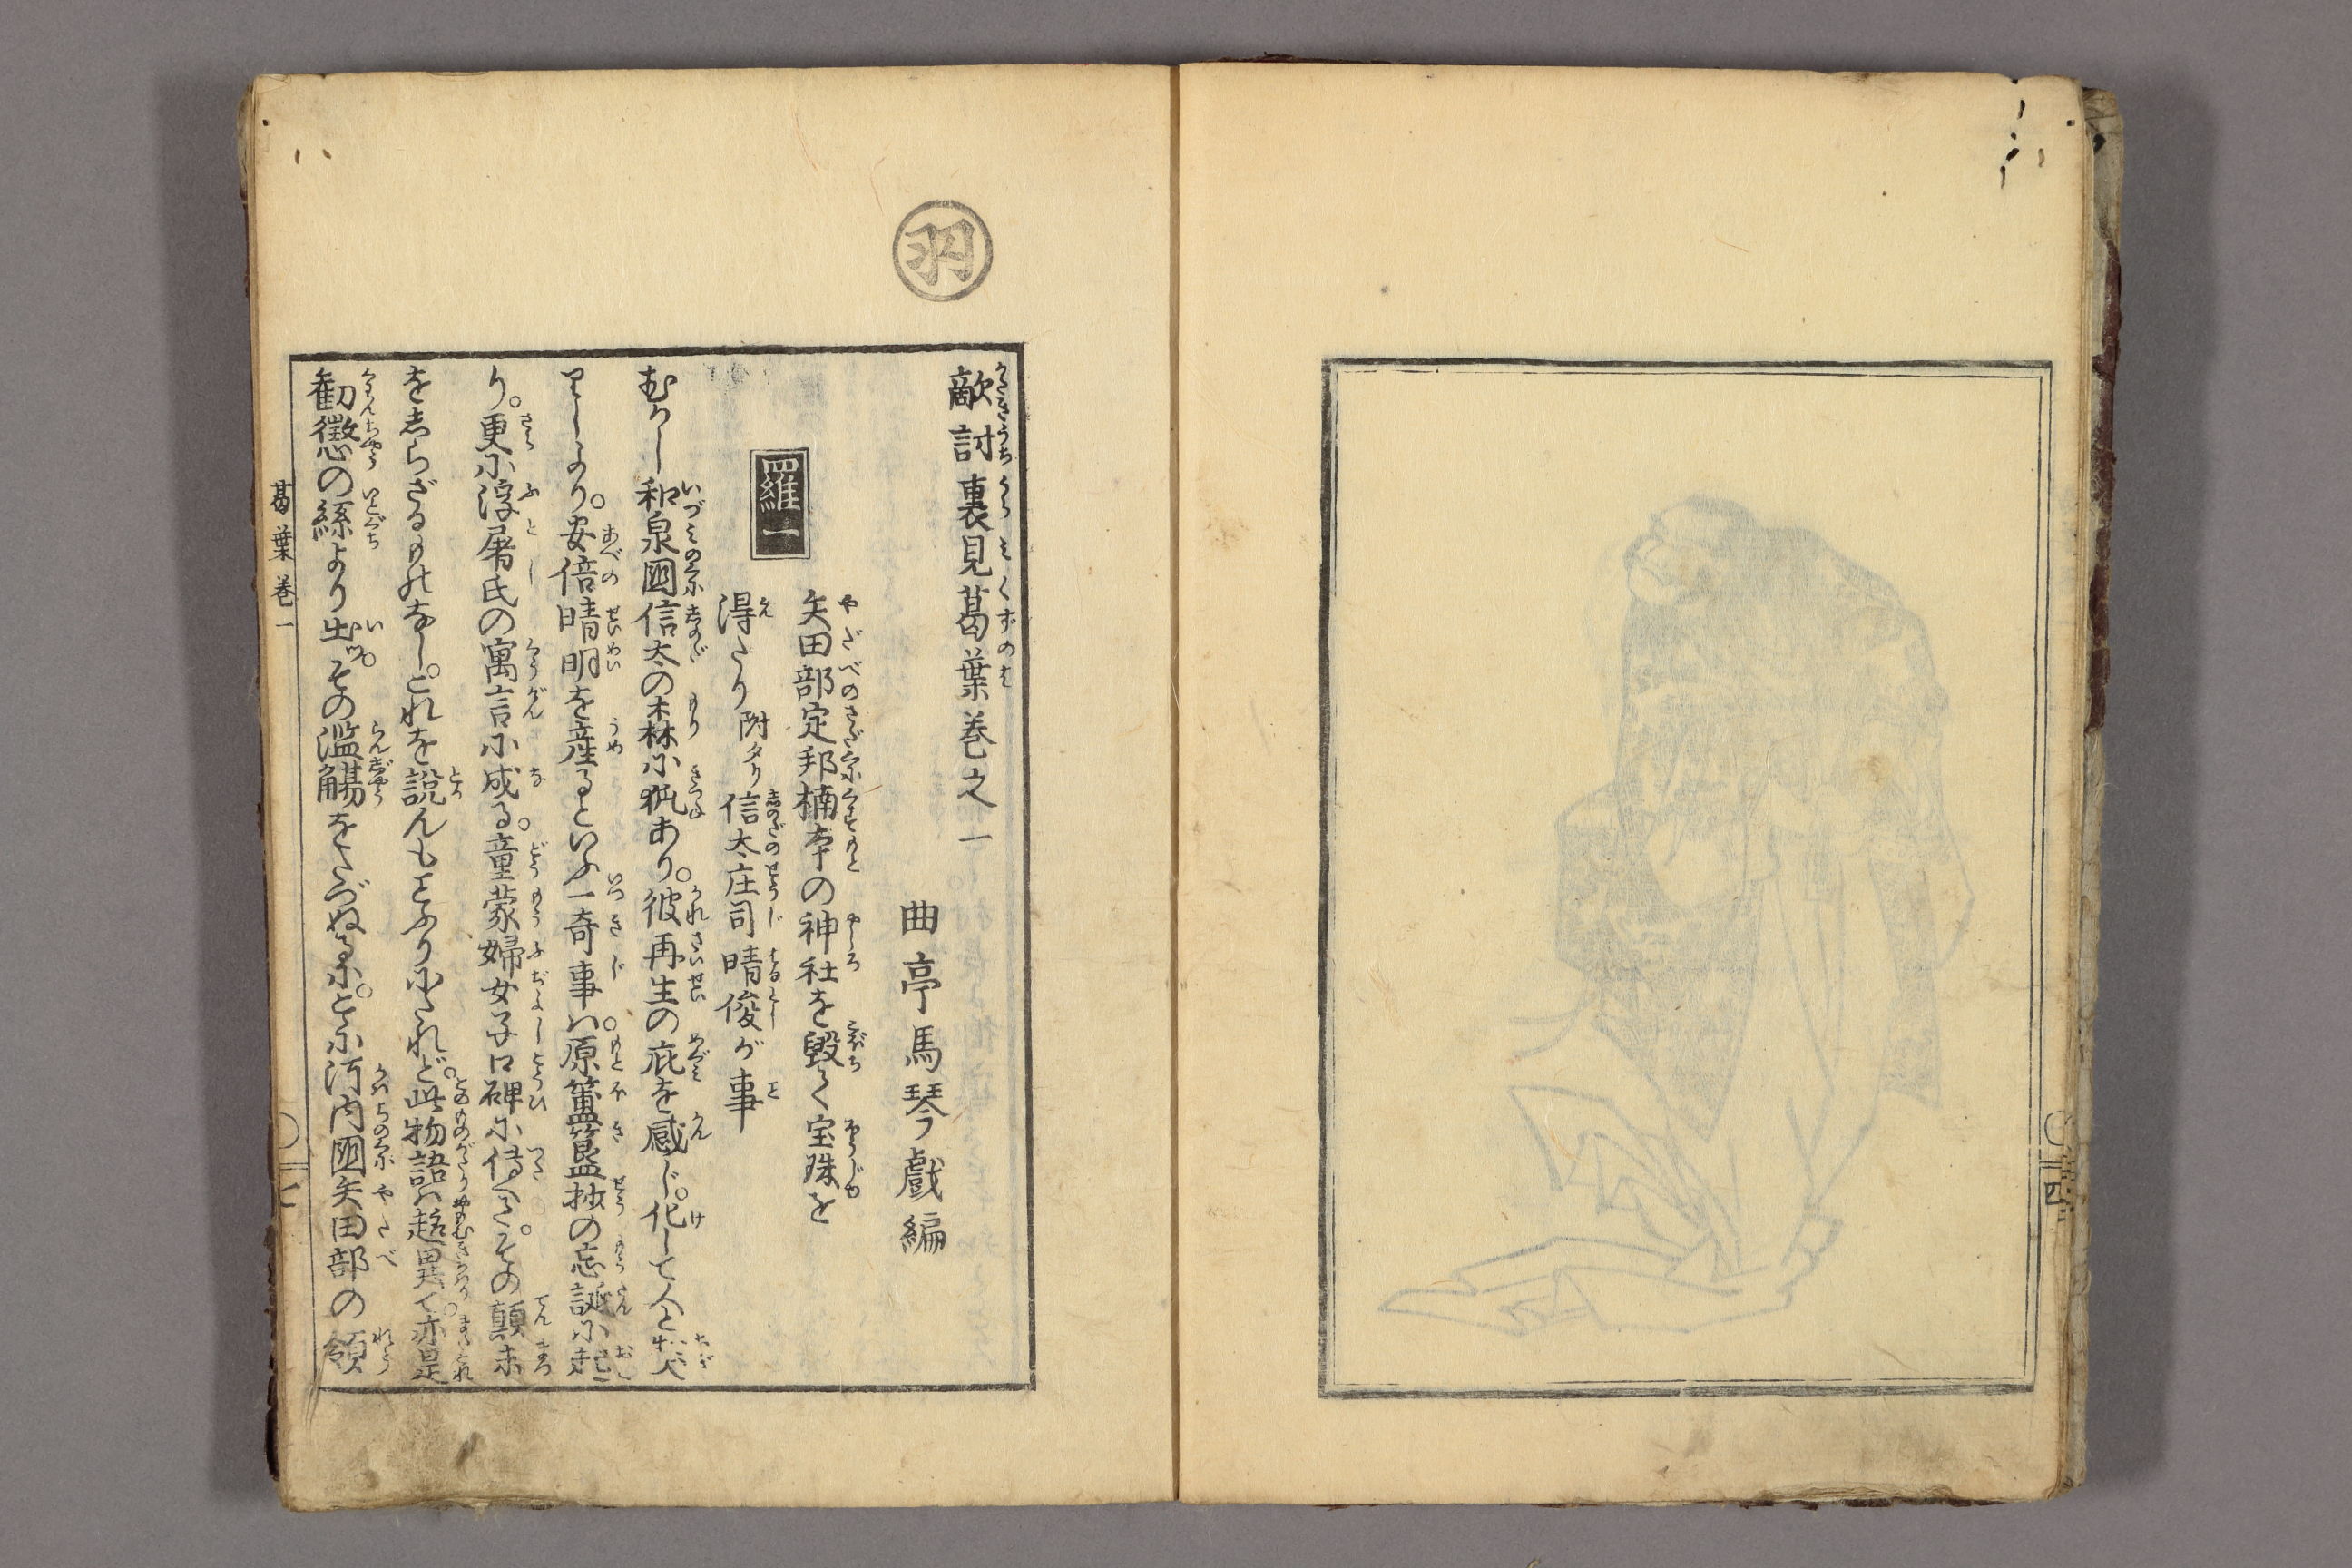 四
羽
敵討裏見葛葉巻之一
曲亭馬琴戯編
羅一
矢田部定邦楠本の神社を毀て宝珠を
得たり 附タリ信太庄司晴俊が事
むかし和泉国信太の森に狐あり。彼再生の庇を感じ。化して人と契
りしより。安倍晴明を産るといふ一奇事は。原簠簋抄の忘誕に起
り。更に浮屠氏の寓言に成る。童蒙婦女子口碑に伝へて。その顛末
をしらざるものなし。これを説んもことふりにたれど。此物語は趣異て。亦是
勧懲の絲より出ツ。その濫觴をたづぬるに。こゝに河内国矢田部の領
葛葉巻一
七